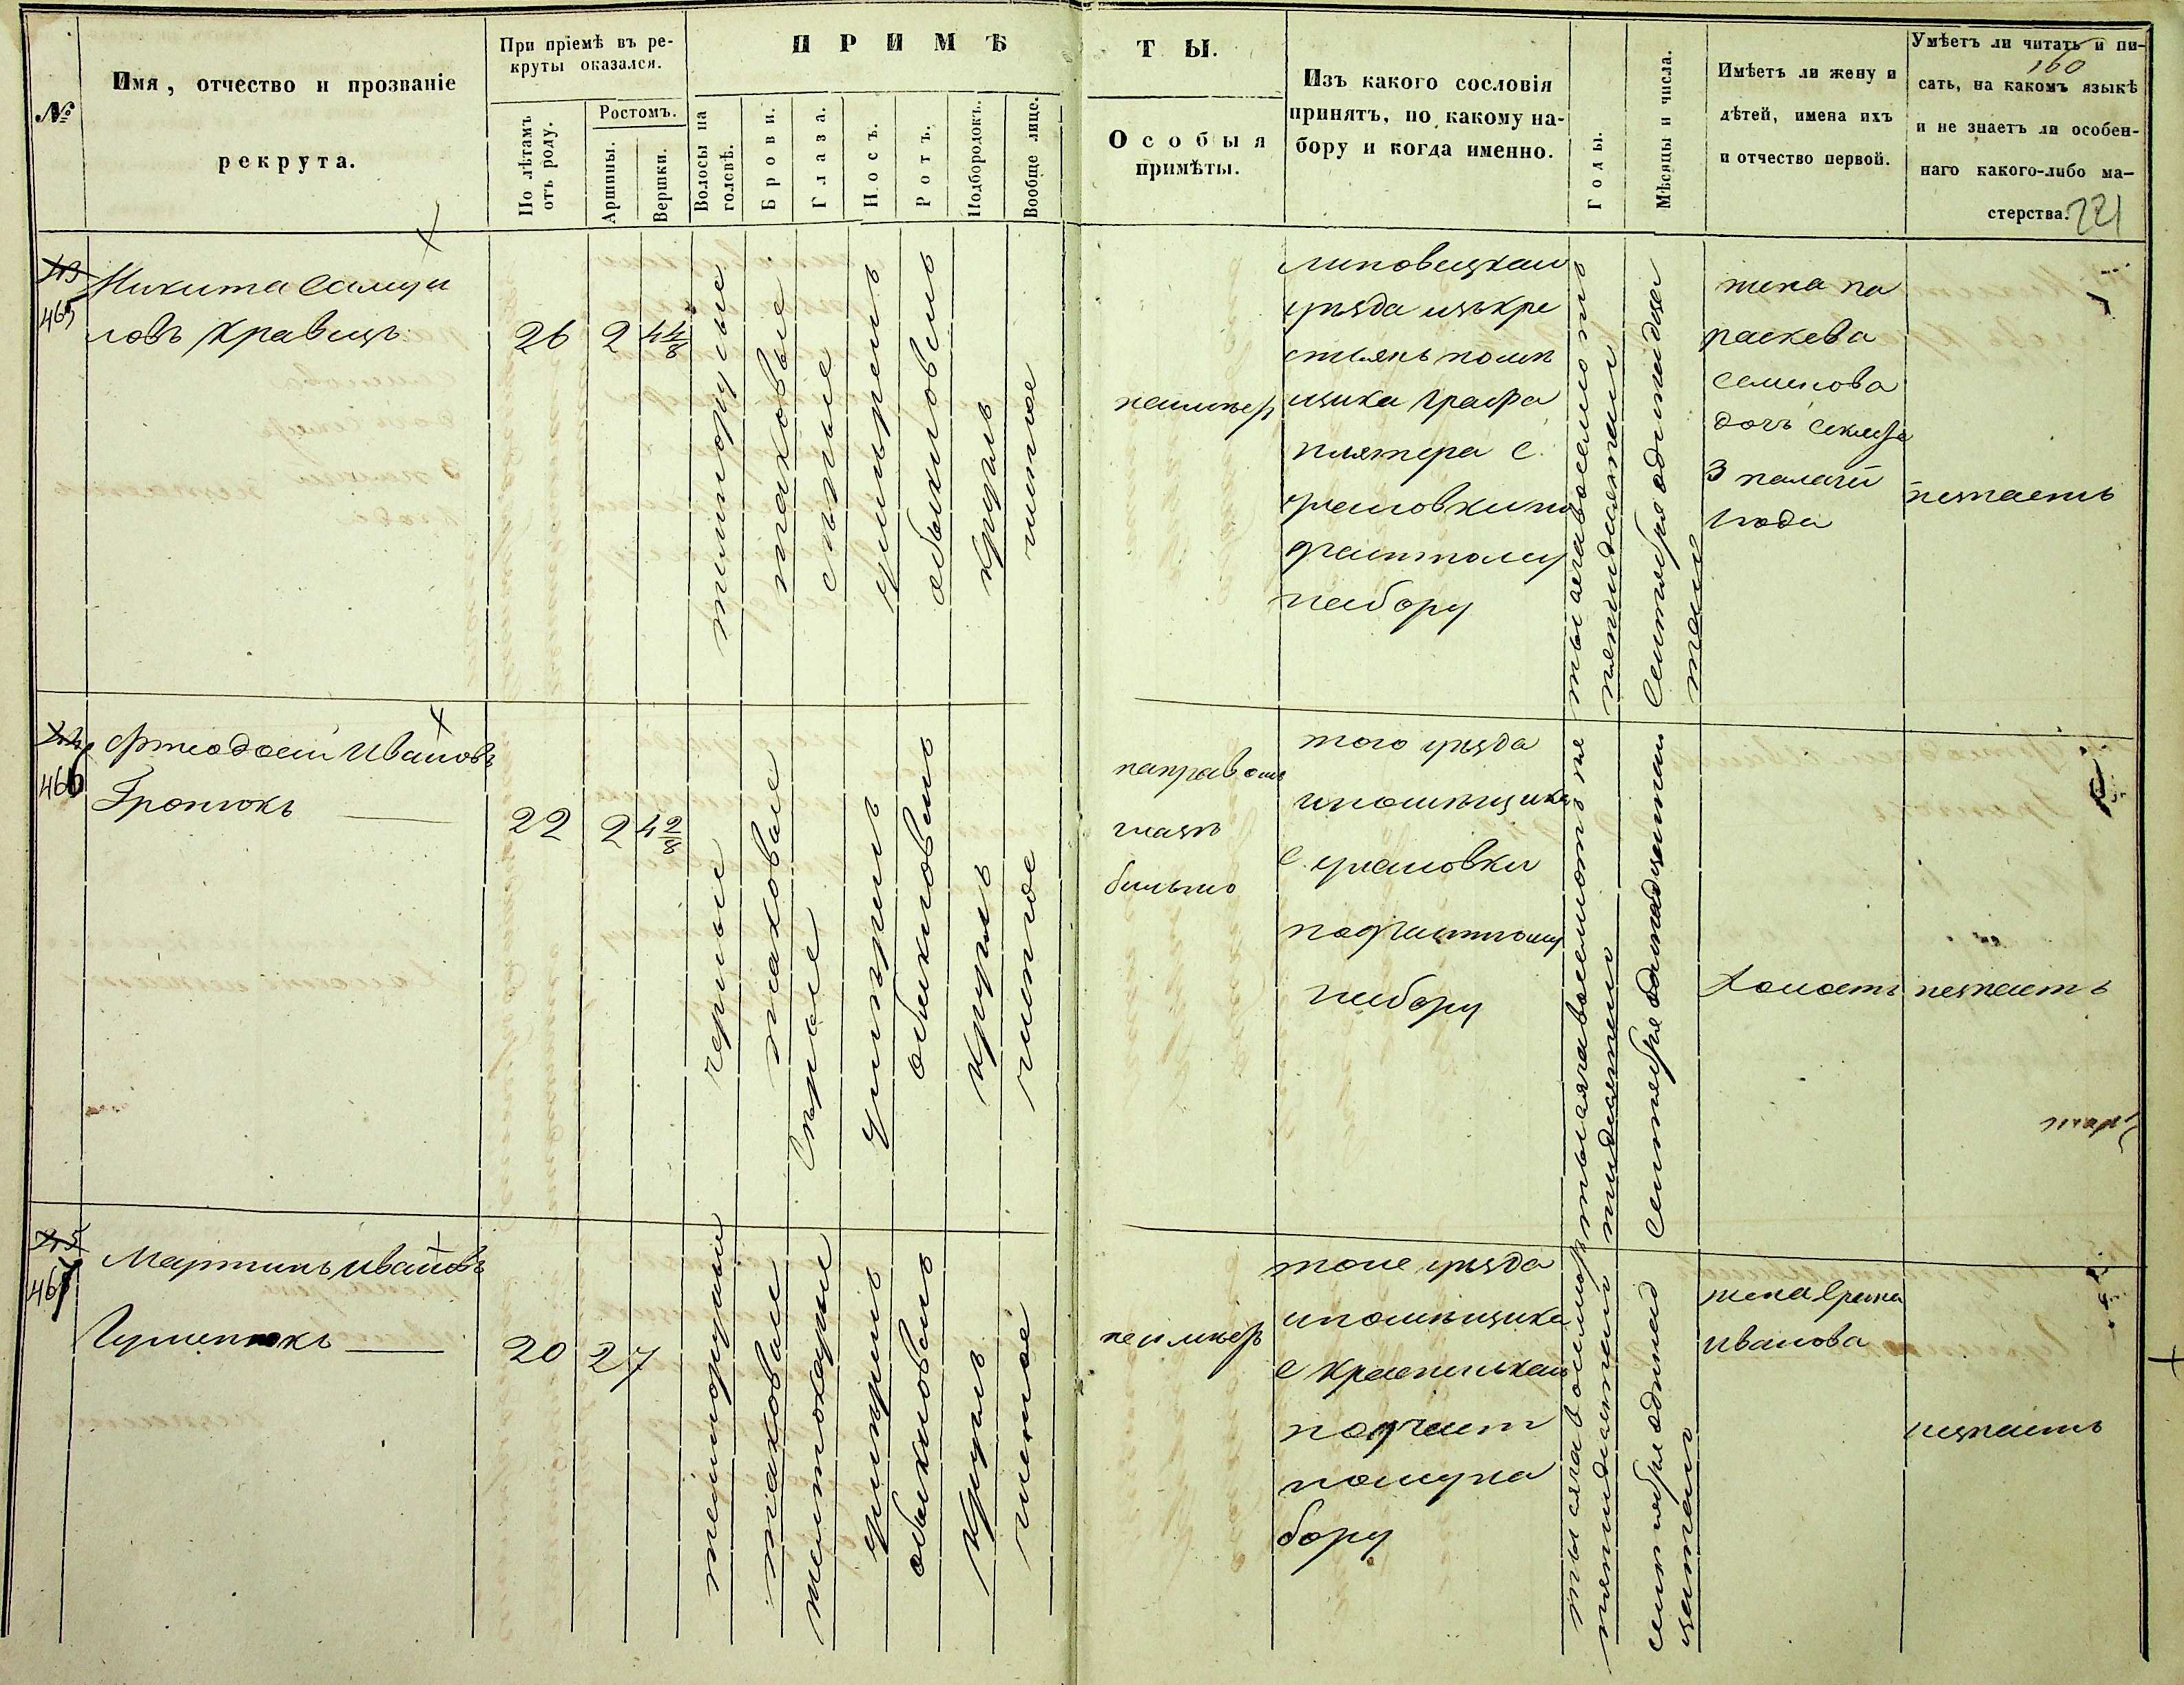 №
Имя, отчество и прозваніе
рекрута.
При пріемѣ въ ре-
круты оказался.
По лѣтамъ
отъ роду.
Ростомъ.
Аршины.
Вершки.
ПРИМѢ
Волосы на
головѣ.
Брови.
Глаза.
Носъ.
Ротъ.
Подбородокъ.
Вообще лице.
ТЫ.
Особыя
примѣты.
Изъ какого сословія
принятъ, по какому на-
бору и когда именно.
Годы.
Мѣсяцы и числа.
Имѣетъ ли жену и
дѣтей, имена ихъ
и отчество первой.
Умѣетъ ли читать и пи-
160
сать, на какомъ языкѣ
и не знаетъ ли особен-
наго какого-либо ма-
стерства.
221
465
Никита Самуи
ловъ Кравецъ
26
2
4 4/8
темнорусые
таковые
сѣрые
умѣренъ
обыкновенъ
круглъ
чистое
неимѣеть
Липовецкаго
уѣзда изъ кре
стьянъ помѣ
щика Графа
Плятера с.
по
частному
набору
тысяча восемьсотъ
пятидесятаго
Сентября одинадца
таго
жена Па
раскева
Семенова
дочь
3
года
незнаетъ
466
Феодосій Ивановъ
Гронюкъ
22
2
4 2/8
черные
таковые
Сѣрые
умѣренъ
обыкновенъ
круглъ
чистое
направомъ
глазѣ
бельмо
того уѣзда
ипомѣщика
с.
почастному
набору
тысяча восемьсотъ пя
тидесятаго
Сентября одинадцатаго
Холостъ
незнаетъ
467
Мартинъ Ивановъ
20
2
7
темнорусые
таковые
желтокарые
умѣренъ
обыкновенъ
круглъ
чистое
неимѣеть
тоже уѣзда
ипомѣщика
с
почаст
ному на
бору
тысяча восемьсотъ
пятидесятаго
сентября одинад
цатаго
жена
Иванова
незнаетъ